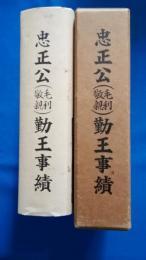 忠正公(毛利敬親)勤王事績
忠正公(毛利敬親)勤王事績